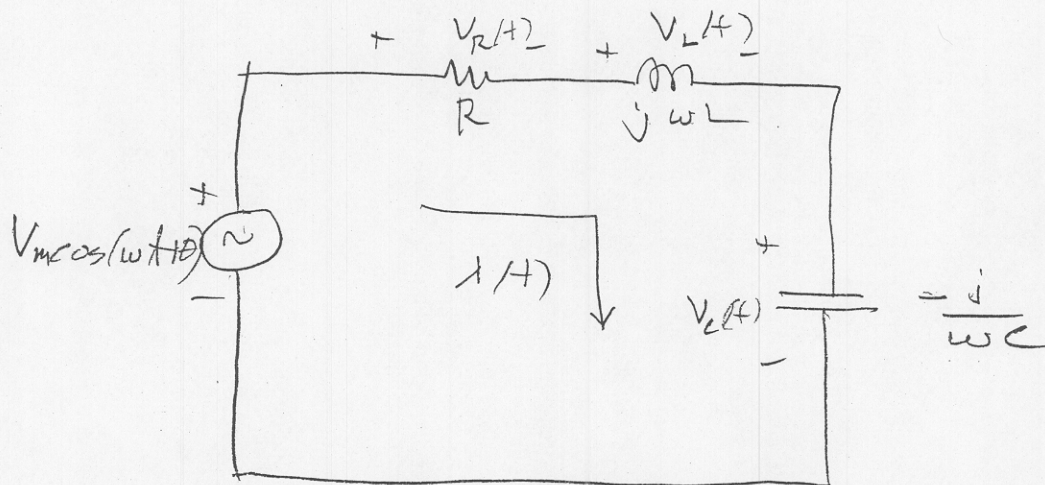 + V_R(t) -
+ V_L(t) -
R
jωL
+
V_m cos(ωt+θ)
~
-
i(t)
+
V_c(t)
-
-j/ωC